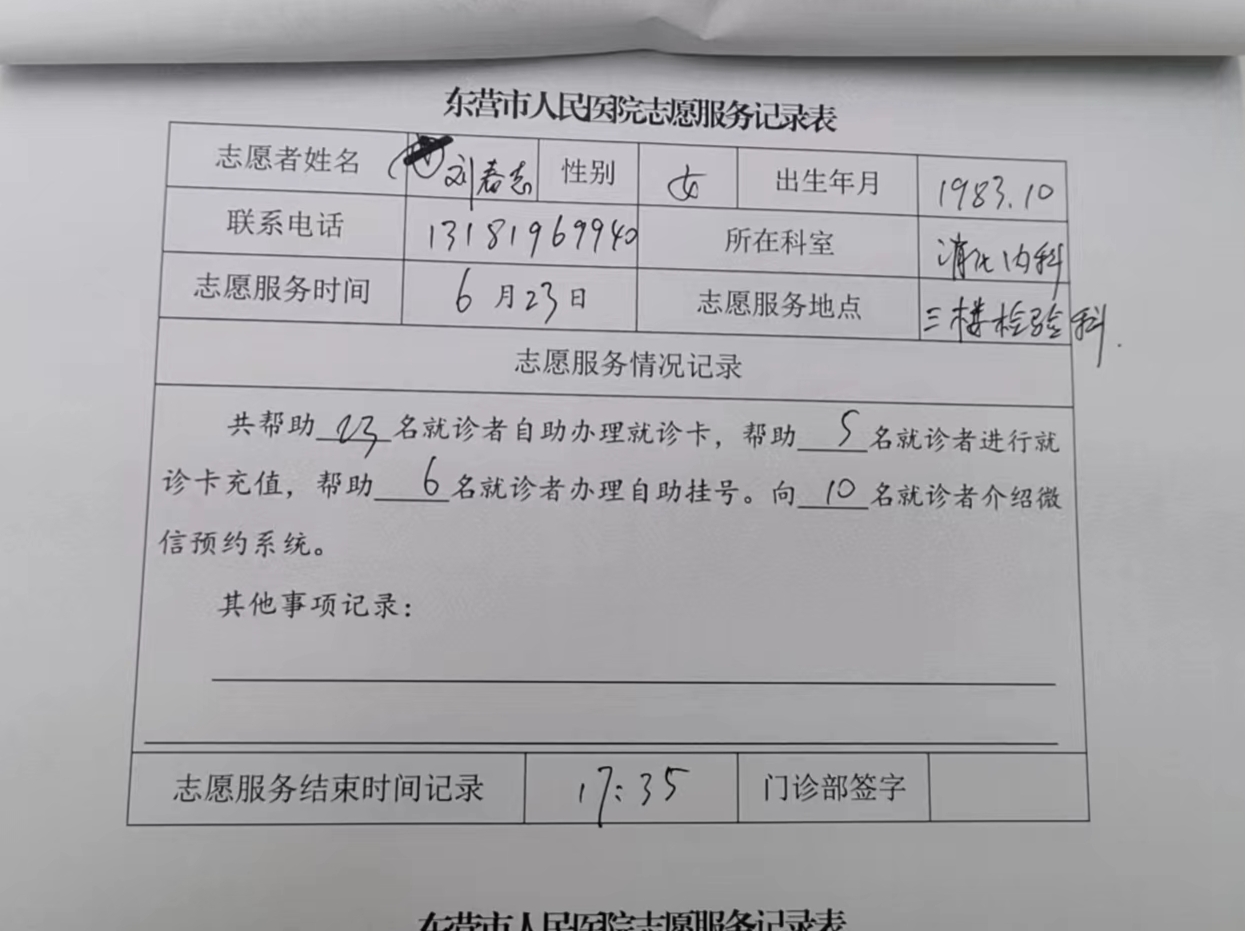 东营市人民医院志愿服务记录表
志愿者姓名 刘春志 性别 女 出生年月 1983.10
联系电话 13181969940 所在科室 消化内科
志愿服务时间 6月23日 志愿服务地点 三楼检验科.
志愿服务情况记录
共帮助23名就诊者自助办理就诊卡，帮助5名就诊者进行就
诊卡充值，帮助6名就诊者办理自助挂号。向10名就诊者介绍微
信预约系统。
其他事项记录：
志愿服务结束时间记录 17:35 门诊部签字
东营市人民医院志愿服务记录表